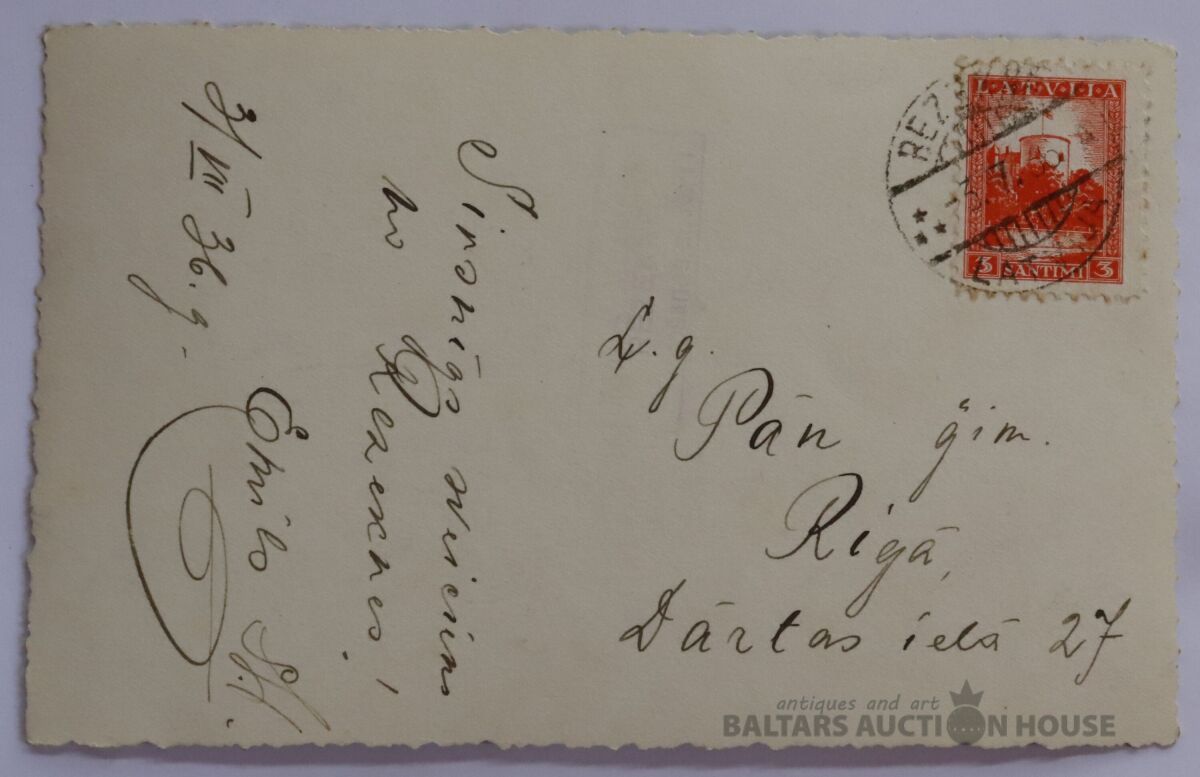 3/VII 36. g.
Sirsnīgs sveiciens
no Rēzeknes!
Emīls
L. g.
Pān ģim.
Rīgā,
Dārtas ielā 27
LATVIJA
3 SANTIMI 3
LATVIJA
antiques and art
BALTARS AUCTION HOUSE